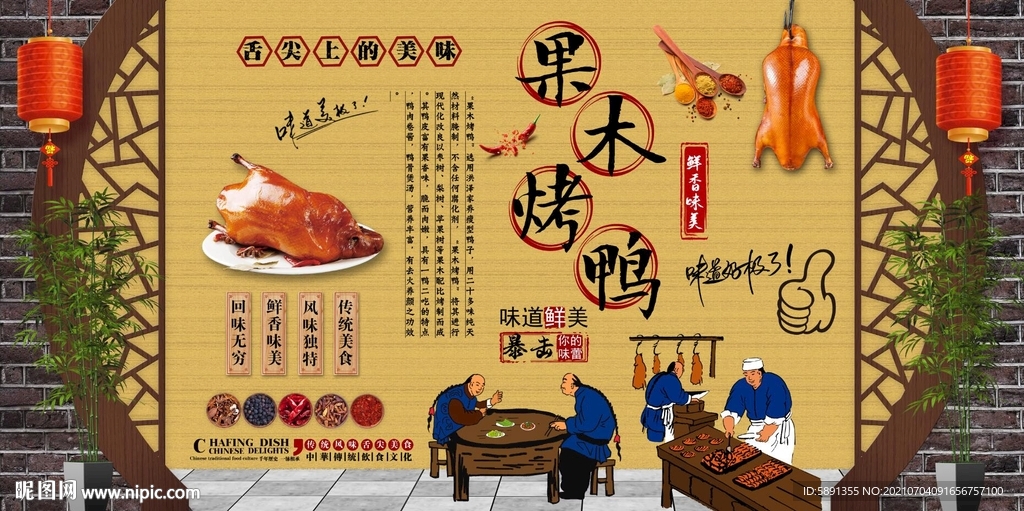 舌尖上的美味
味道美极了!
果木烤鸭
鲜香味美
味道好极了!
"果木烤鸭"选用洪泽家养瘦型鸭子,用二十多味纯天
然材料腌制,不含任何腐化剂,"果木烤鸭"将其进行
现代化改良以枣树、梨树、苹果树等果木配比烤制而成
。其鸭皮富有果香味,脆而肉嫩,具有一鸭二吃的特点
,鸭肉卷酱,鸭骨煲汤,营养丰富,有去火养颜之功效
。
味道鲜美
暴击
你的
味蕾
传统美食
风味独特
鲜香味美
回味无穷
CHAFING DISH
CHINESE DELIGHTS
Chinese traditional food culture 千年历史 一脉相承
传统风味舌尖美食
中華傳統飲食文化
昵图网 www.nipic.com
ID:5891355 NO:20210704091656757100